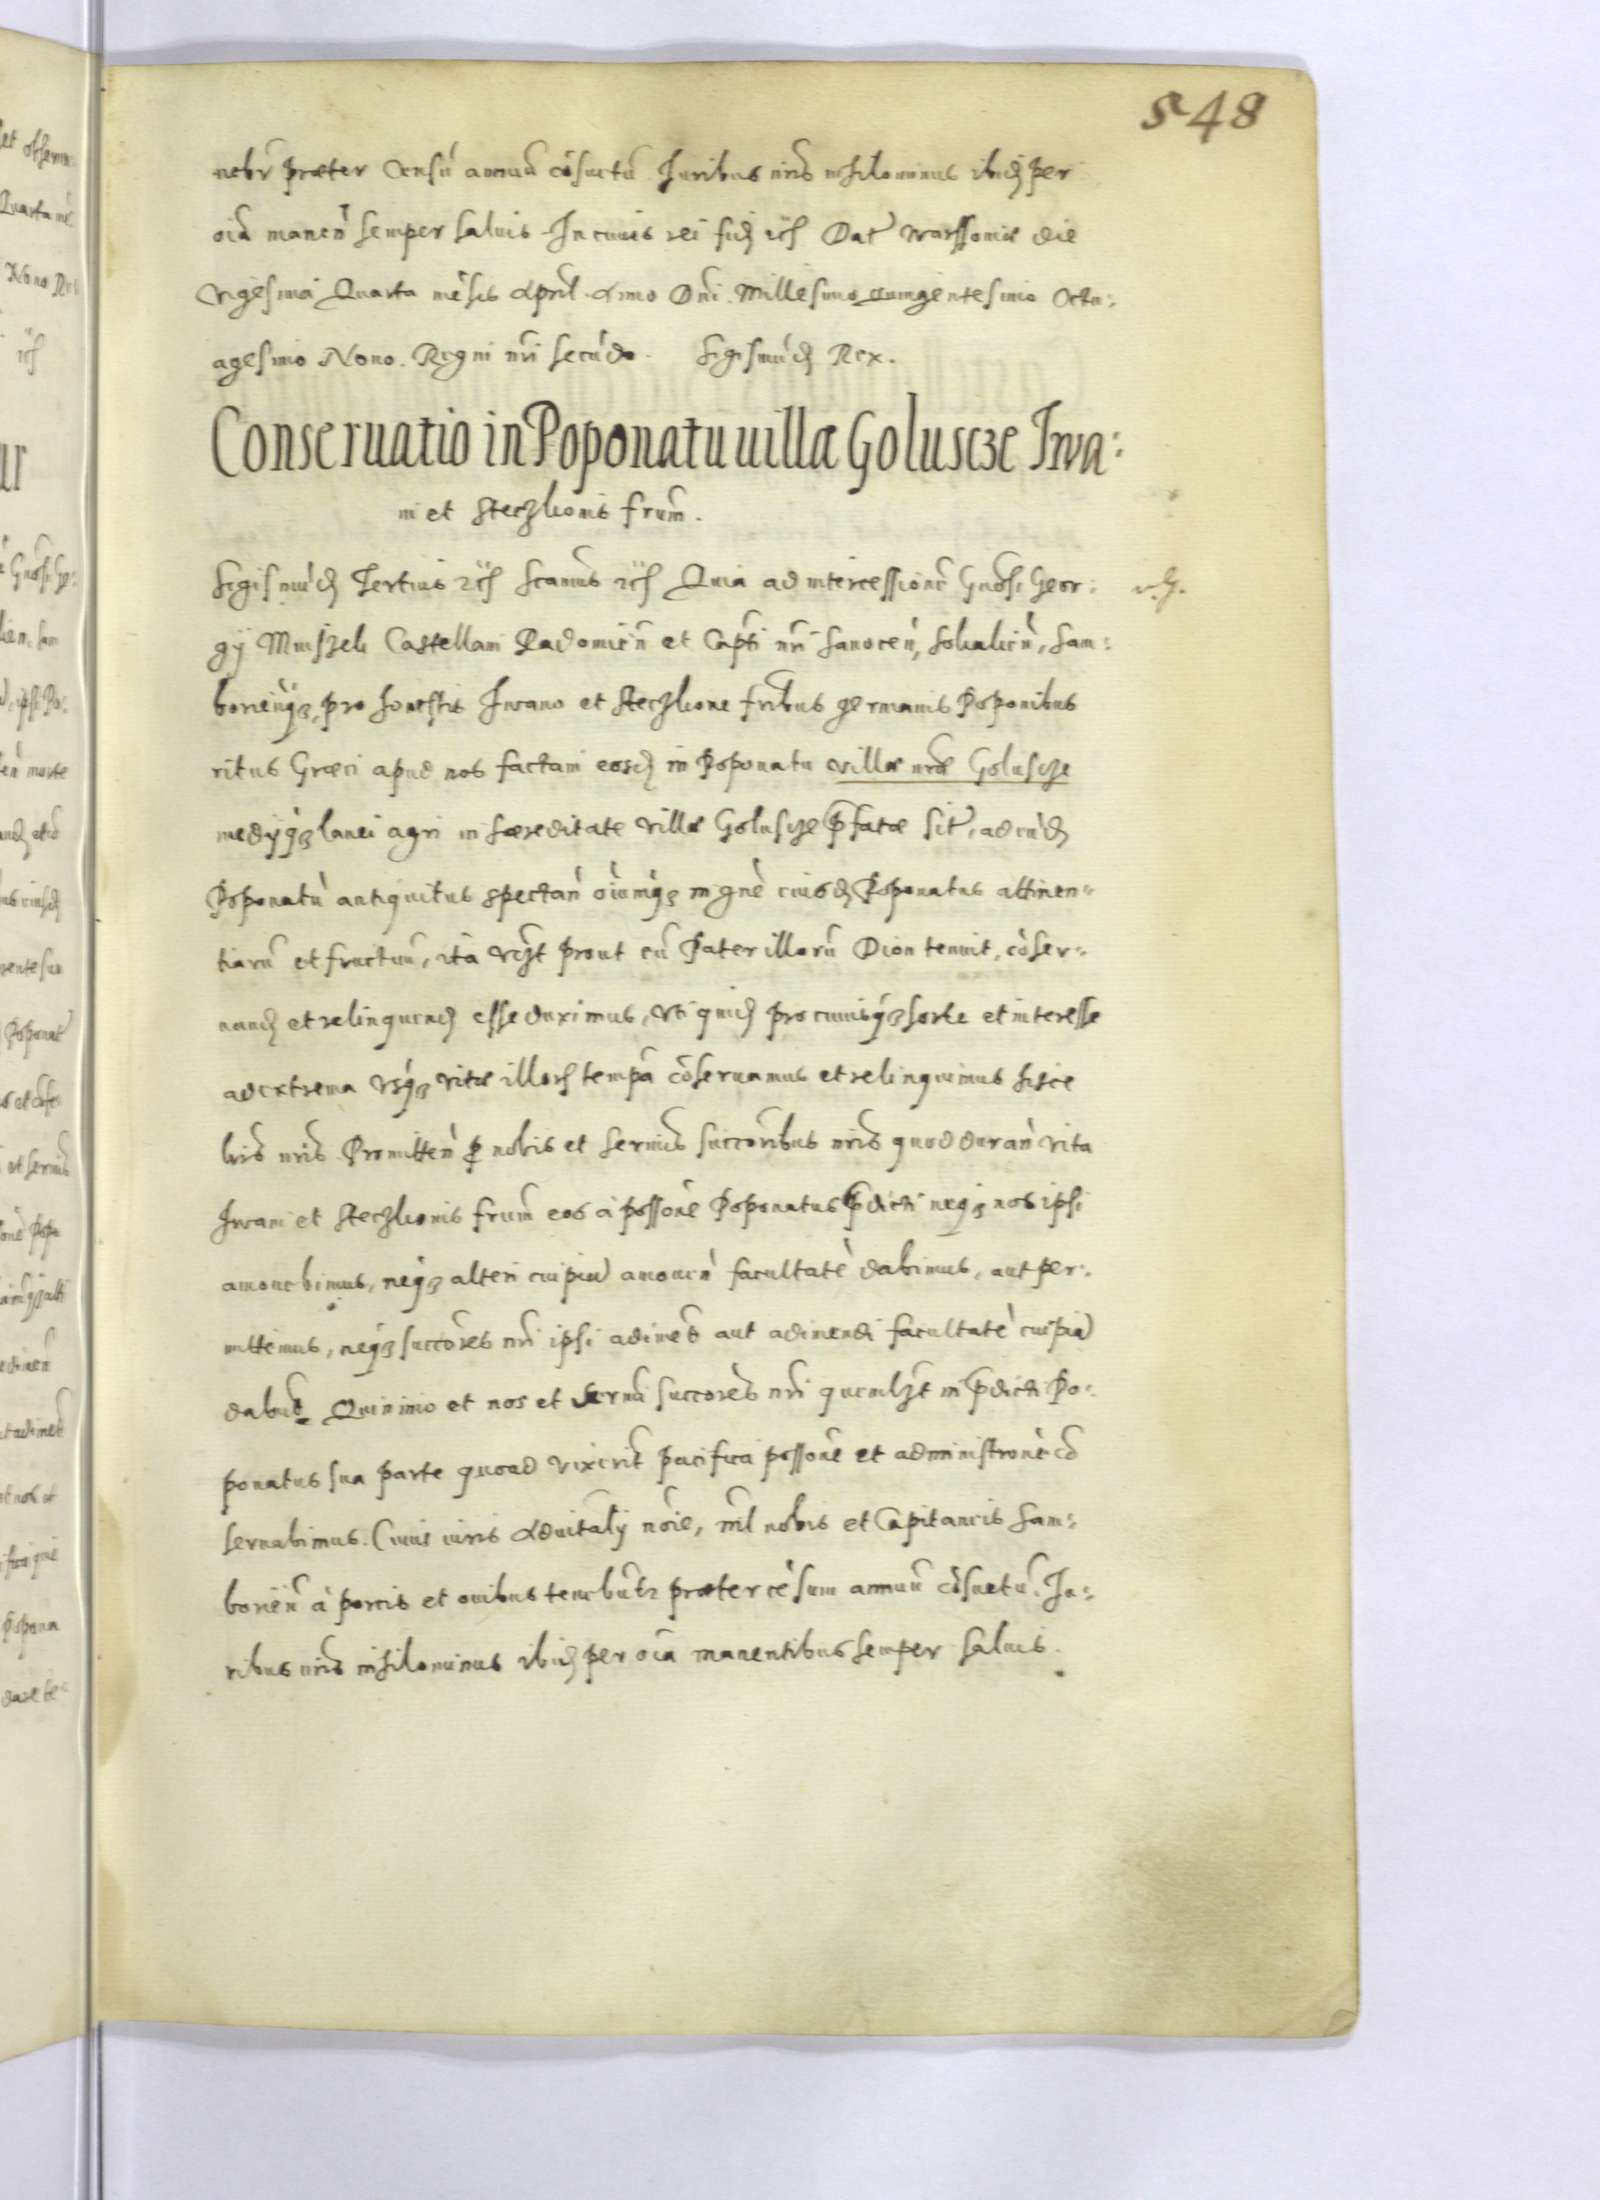 548
nebr̃ præter Censũ annuũ cõsuetũ Iuribus nr̃is nihilominus ibid per
oĩa manen̄ semper saluis In cuius rei fid etc Dat Warssouiæ die
Vigesima Quarta mẽsis April Anno Dñi Millesimo Quingentesimo Octu:
agesimo Nono. Regni nr̃i secũdo. Sigismũd Rex.
Conseruatio in Poponatu uillæ Goluscze Iwa:
ni et Steczkonis frum̃.
Sigismũd Tertius etc Scamus etc Quia ad intercessionẽ Gnõsi Geor:
gÿ Mniszek Castellani Radomień et Capti nr̃i Sanoceñ, Solaliceñ, Sam:
borieñq3, pro honestis Iwano et Steczkone fribus germanis Poponibus
ritus Græci apud nos factam eosd in Poponatu villæ nr̃æ Goluscze
medÿq3 lanei agri in hæreditate villæ Goluscze p̃fatæ sit, ad eũd
Poponatũ antiquitus spectañ oĩumq3 in gñe eiusd Poponatus attinen:
tiarũ et fructuũ, ita vczt prout eũ Pater illorũ Dion tenuit, cõser:
uand et relinquend esse duximus, Vti quid pro cuiusq3 sorte et interesse
ad extrema vsq3 vitæ illor tempa cõseruamus et relinquimus hisce
lris nr̃is. Promitteñ p nobis et serenis succoribus nr̃is quod durañ vita
Iwani et Steczkonis frum̃ eos à possoñe Poponatus p̃dicti neq3 nos ipsi
amouebimus, neq3 alteri cuipia amoueñ facultatẽ dabimus, aut per:
mittemus, neq3 succores nr̃i ipsi adiment aut adimendi facultatẽ cuipia
dabunt Quinimo et nos et Sereni succores nr̃i quemlzt in p̃dicti Po:
ponatus sua parte quoad vixerit pacifica possoñe et administroñe cõ
seruabimus. Cuius iuris Aduitalÿ nõie, nil nobis et Capitaneis Sam:
borieñ à porcis et ouibus tenebũtr præter cẽsum annuũ cõsuetũ. Iu:
ribus nr̃is nihilominus ibid per oĩa manentibus semper saluis.